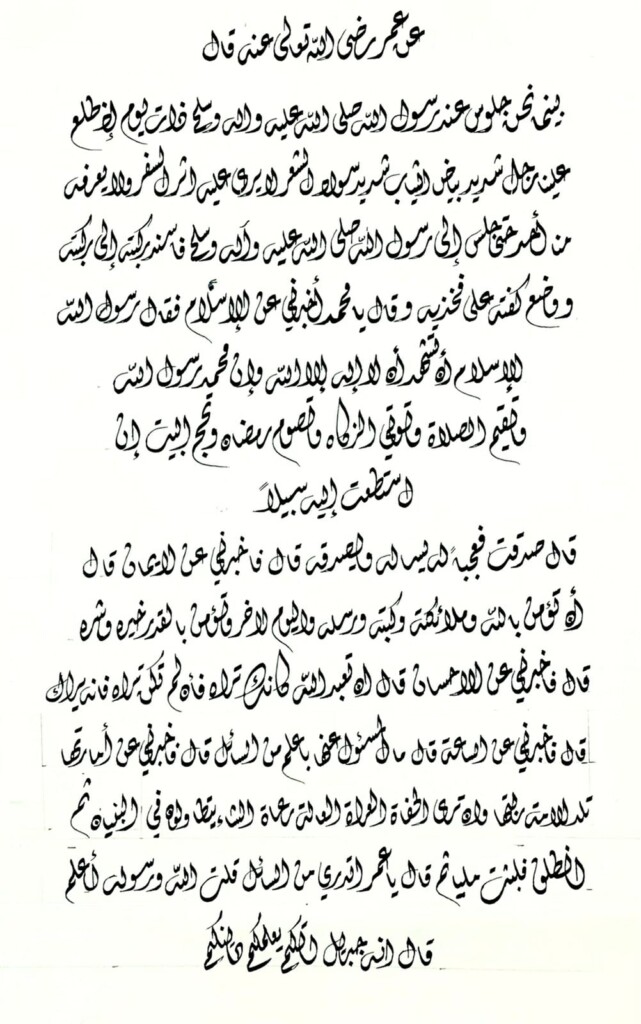 عن عمر رضى الله تعالى عنه قال
بينما نحن جلوس عند رسول الله صلى الله عليه واله وسلم ذات يوم إذ طلع
علينا رجل شديد بياض الثياب شديد سواد الشعر لا يرى عليه اثر السفر ولا يعرفه
من أحد حتى جلس إلى رسول الله صلى الله عليه وآله وسلم فاسند ركبتيه إلى ركبتيه
ووضع كفيه على فخذيه وقال يا محمد أخبرني عن الإسلام فقال رسول الله
الإسلام أن تشهد أن لا إله إلا الله وان محمد رسول الله
وتقيم الصلاة وتؤتي الزكاه وتصوم رمضان وتحج البيت إن
استطعت إليه سبيلاً
قال صدقت فعجبنا له يساله ويصدقه قال فاخبرني عن الايمان قال
أن تؤمن بالله وملائكته وكتبه ورسله واليوم الاخر وتؤمن بالقدر خيره وشره
قال فاخبرني عن الاحسان قال ان تعبد الله كانك تراه فأن لم تكن تراه فانه يراك
قال فاخبرني عن الساعة قال ما المسؤول عنها باعلم من السائل قال فاخبرني عن أمارتها
تلد الامة ربتها وان ترى الحفاة العراة العالة رعاة الشاء يتطاولون في البنيان ثم
انطلق فلبثت مليا ثم قال يا عمر اتدري من السائل قلت الله ورسوله أعلم
قال انه جبريل اتاكم يعلمكم دينكم